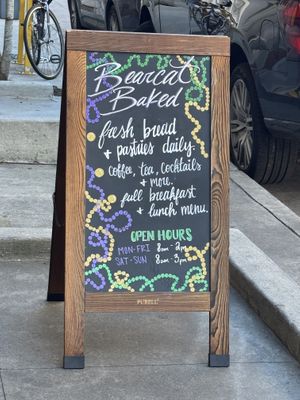 Bearcat
Baked
fresh bread
+ pastries daily.
Coffee, tea, Cocktails
+ more.
full breakfast
+ lunch menu.
OPEN HOURS
MON-FRI 8am - 2pm
SAT-SUN 8am - 3pm